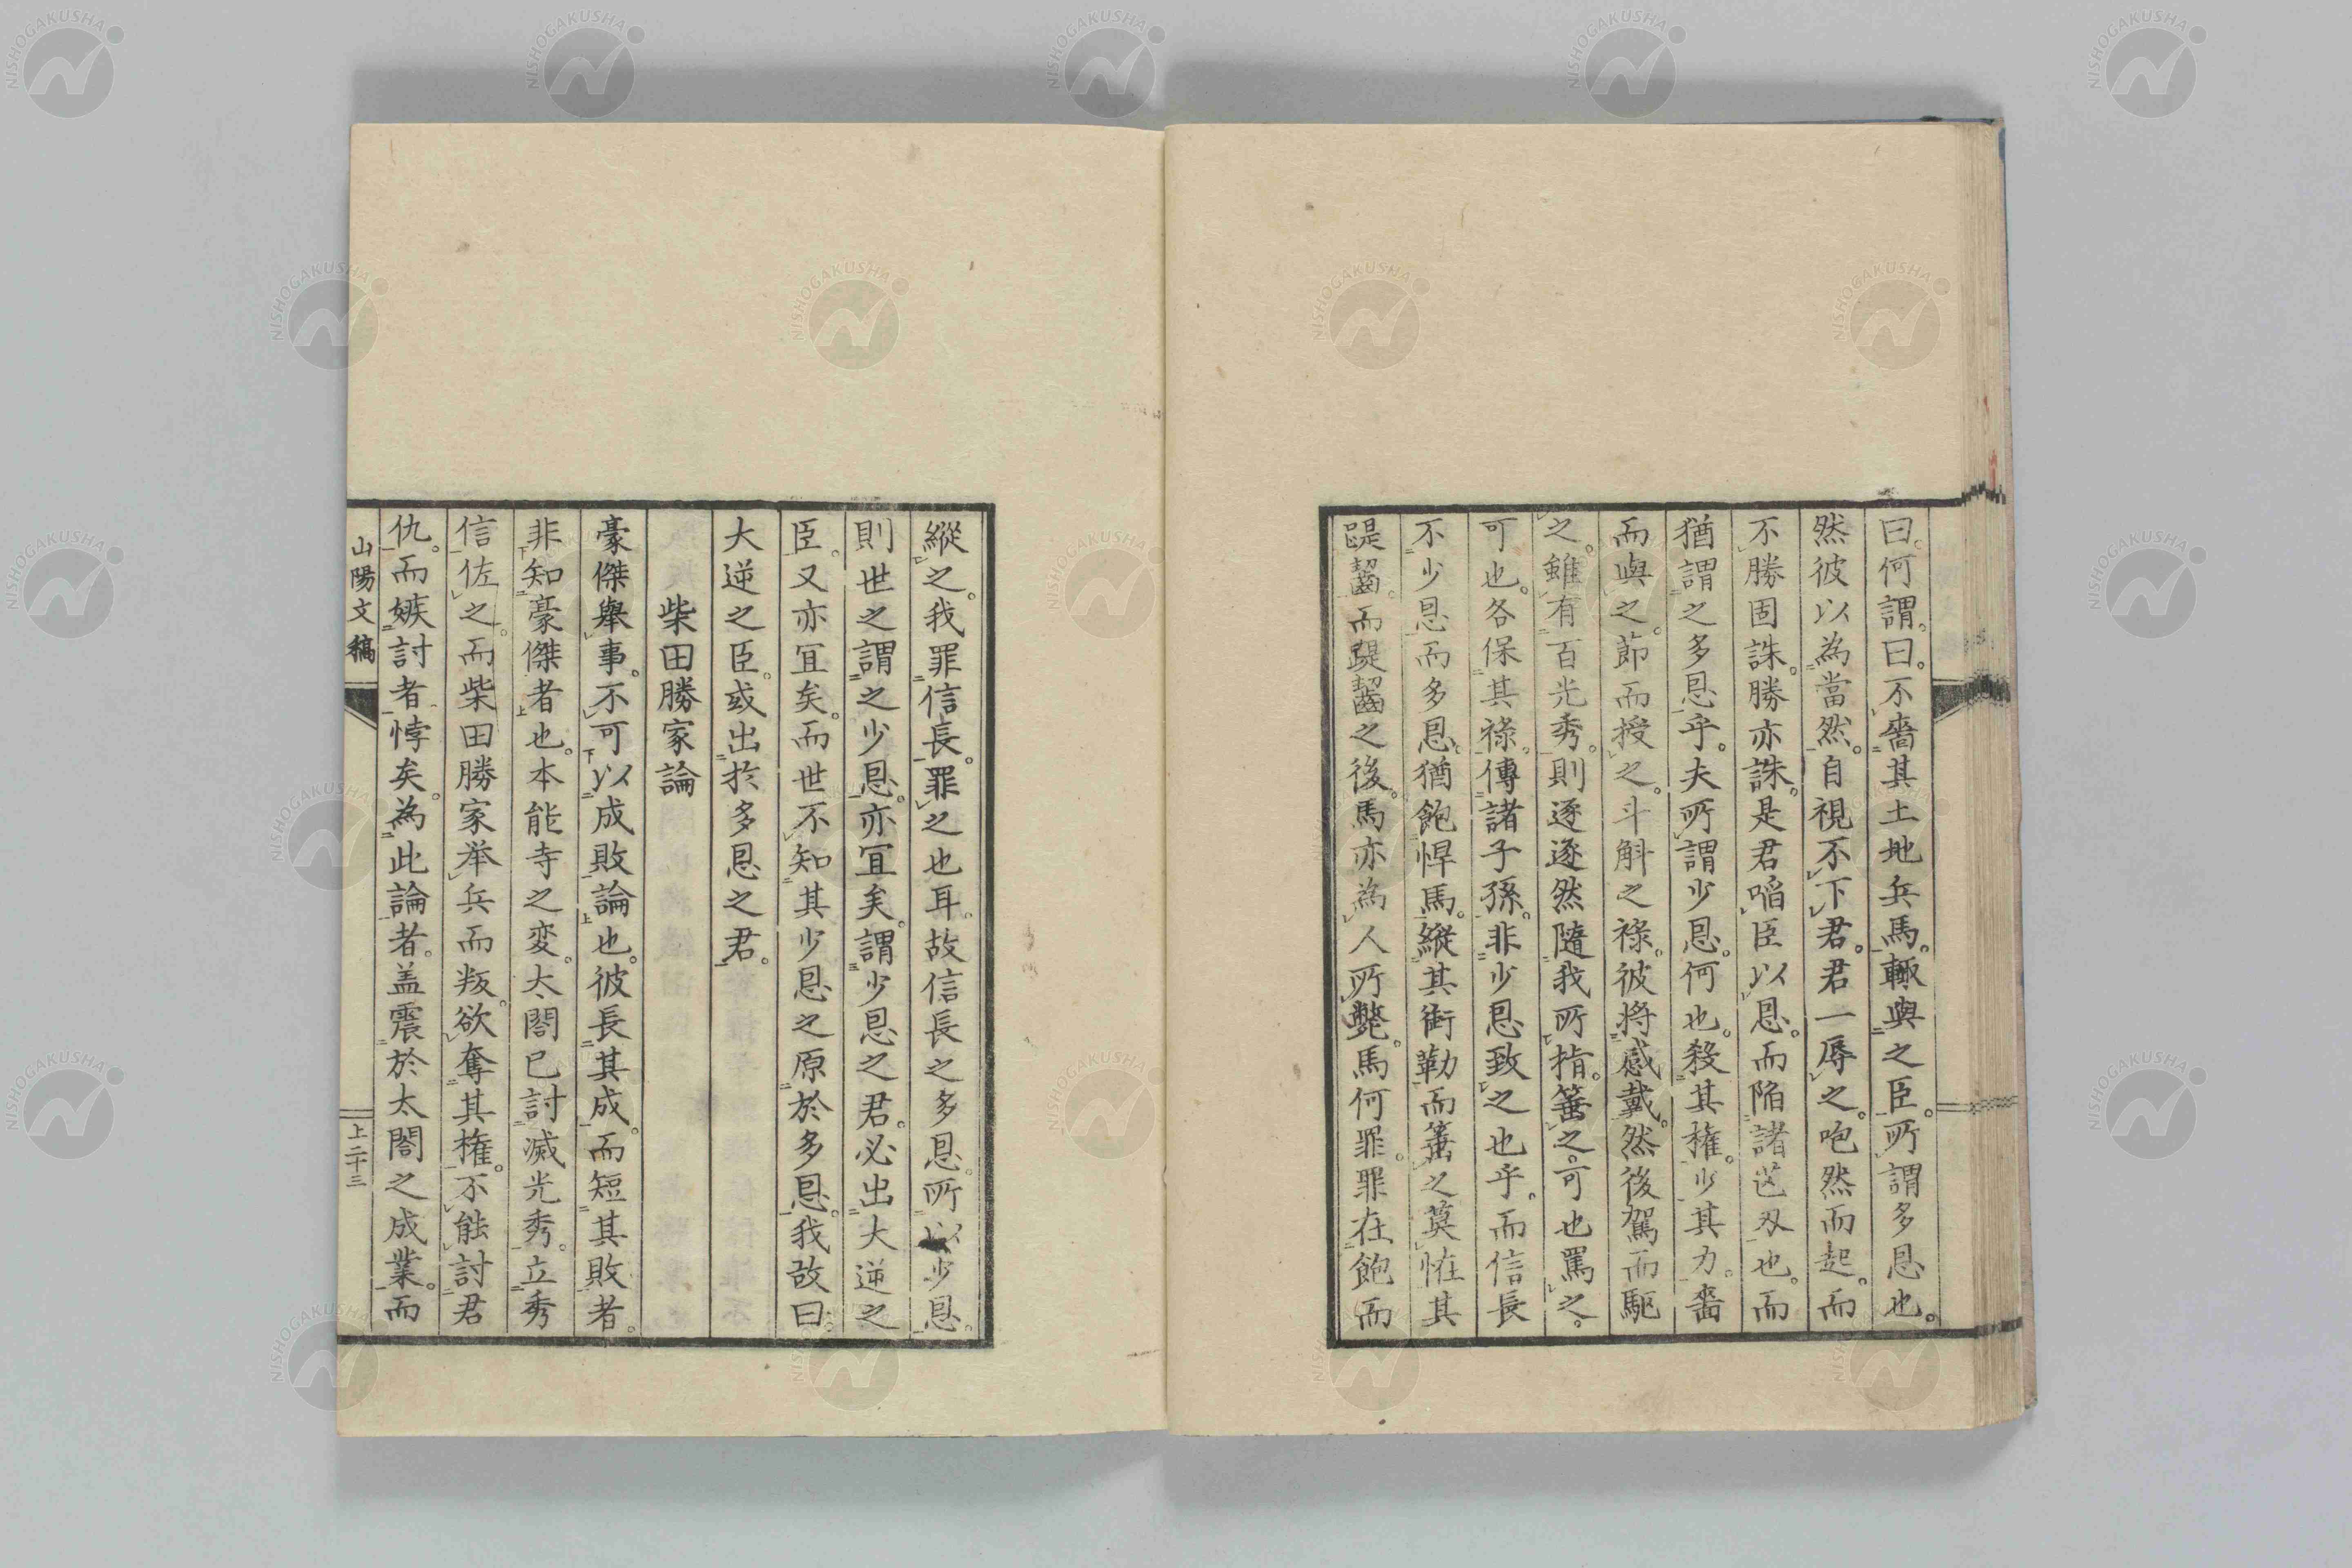 曰。何謂。曰。不嗇其土地兵馬。輙與之臣。所謂多恩也。
然彼以為當然。自視不下君。君一辱之。咆然而起。而
不勝固誅。勝亦誅。是君啗臣以恩。而陥諸芒刃也。而
猶謂之多恩乎。夫所謂少恩。何也。殺其権。少其力。嗇
而與之。節而授之。斗斛之祿。彼将感戴。然後駕而駆
之。雖有百光秀。則逐逐然隨我所指。箠之。可也罵之。
可也。各保其祿。傳諸子孫。非少恩致之也乎。而信長
不少恩而多恩。猶飽悍馬。縦其銜勒而箠之。莫恠其
踶齧。而踶齧之後。馬亦為人所斃。馬何罪。罪在飽而
縱之。我罪信長。罪之也耳。故信長之多恩。所以少恩。
則世之謂之少恩。亦宜矣。謂少恩之君。必出大逆之
臣。又亦宜矣。而世不知其少恩之原於多恩。我故曰。
大逆之臣。或出於多恩之君。
柴田勝家論
豪傑舉事。不可以成敗論也。彼長其成。而短其敗者。
非知豪傑者也。本能寺之変。太閤已討滅光秀。立秀
信佐之。而柴田勝家举兵而叛。欲奪其権。不能討君
仇。而嫉討者悖矣。為此論者。盖震於太閤之成業。而
山陽文稿
上二十三
NISHOGAKUSHA